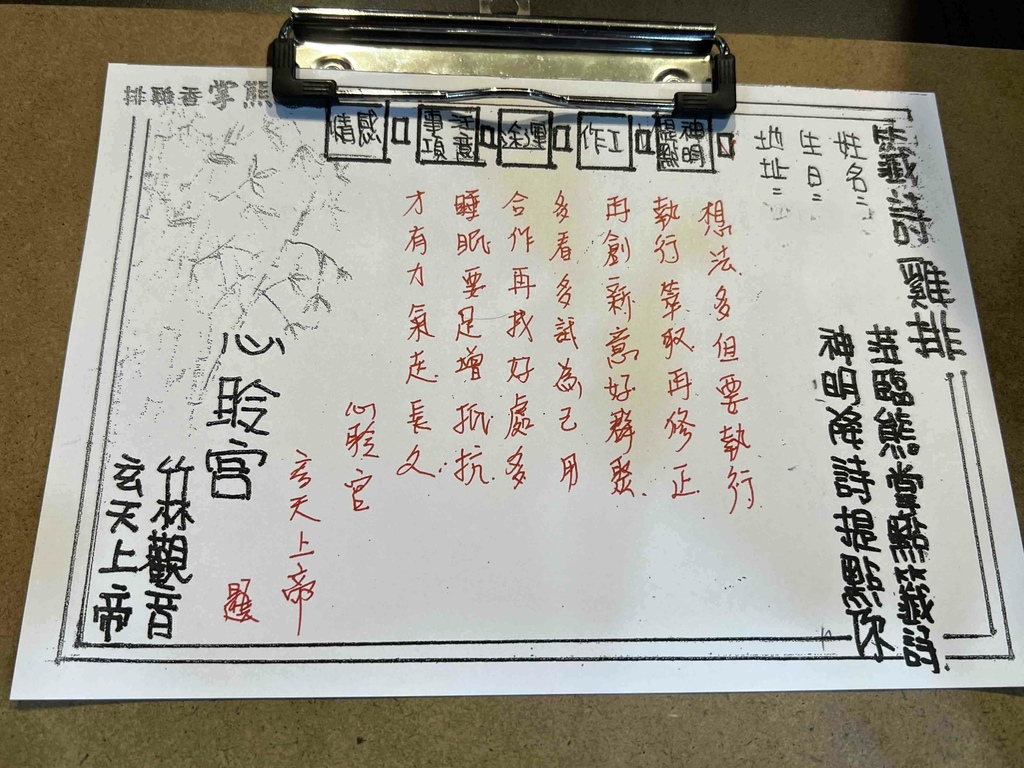 籤詩雞排
熊掌
神明降詩來提點你
姓名:
生日:
地址:
神明提點
工作
運途
注意事項
感情
想法多但要執行
執行萃取再修正
再創新意好群聚
多看多試為己用
合作再找好處多
睡眠要足增抵抗
才有力氣走長久
心聆宮
玄天上帝
題
熊掌香雞排
心聆宮
竹林觀音
玄天上帝